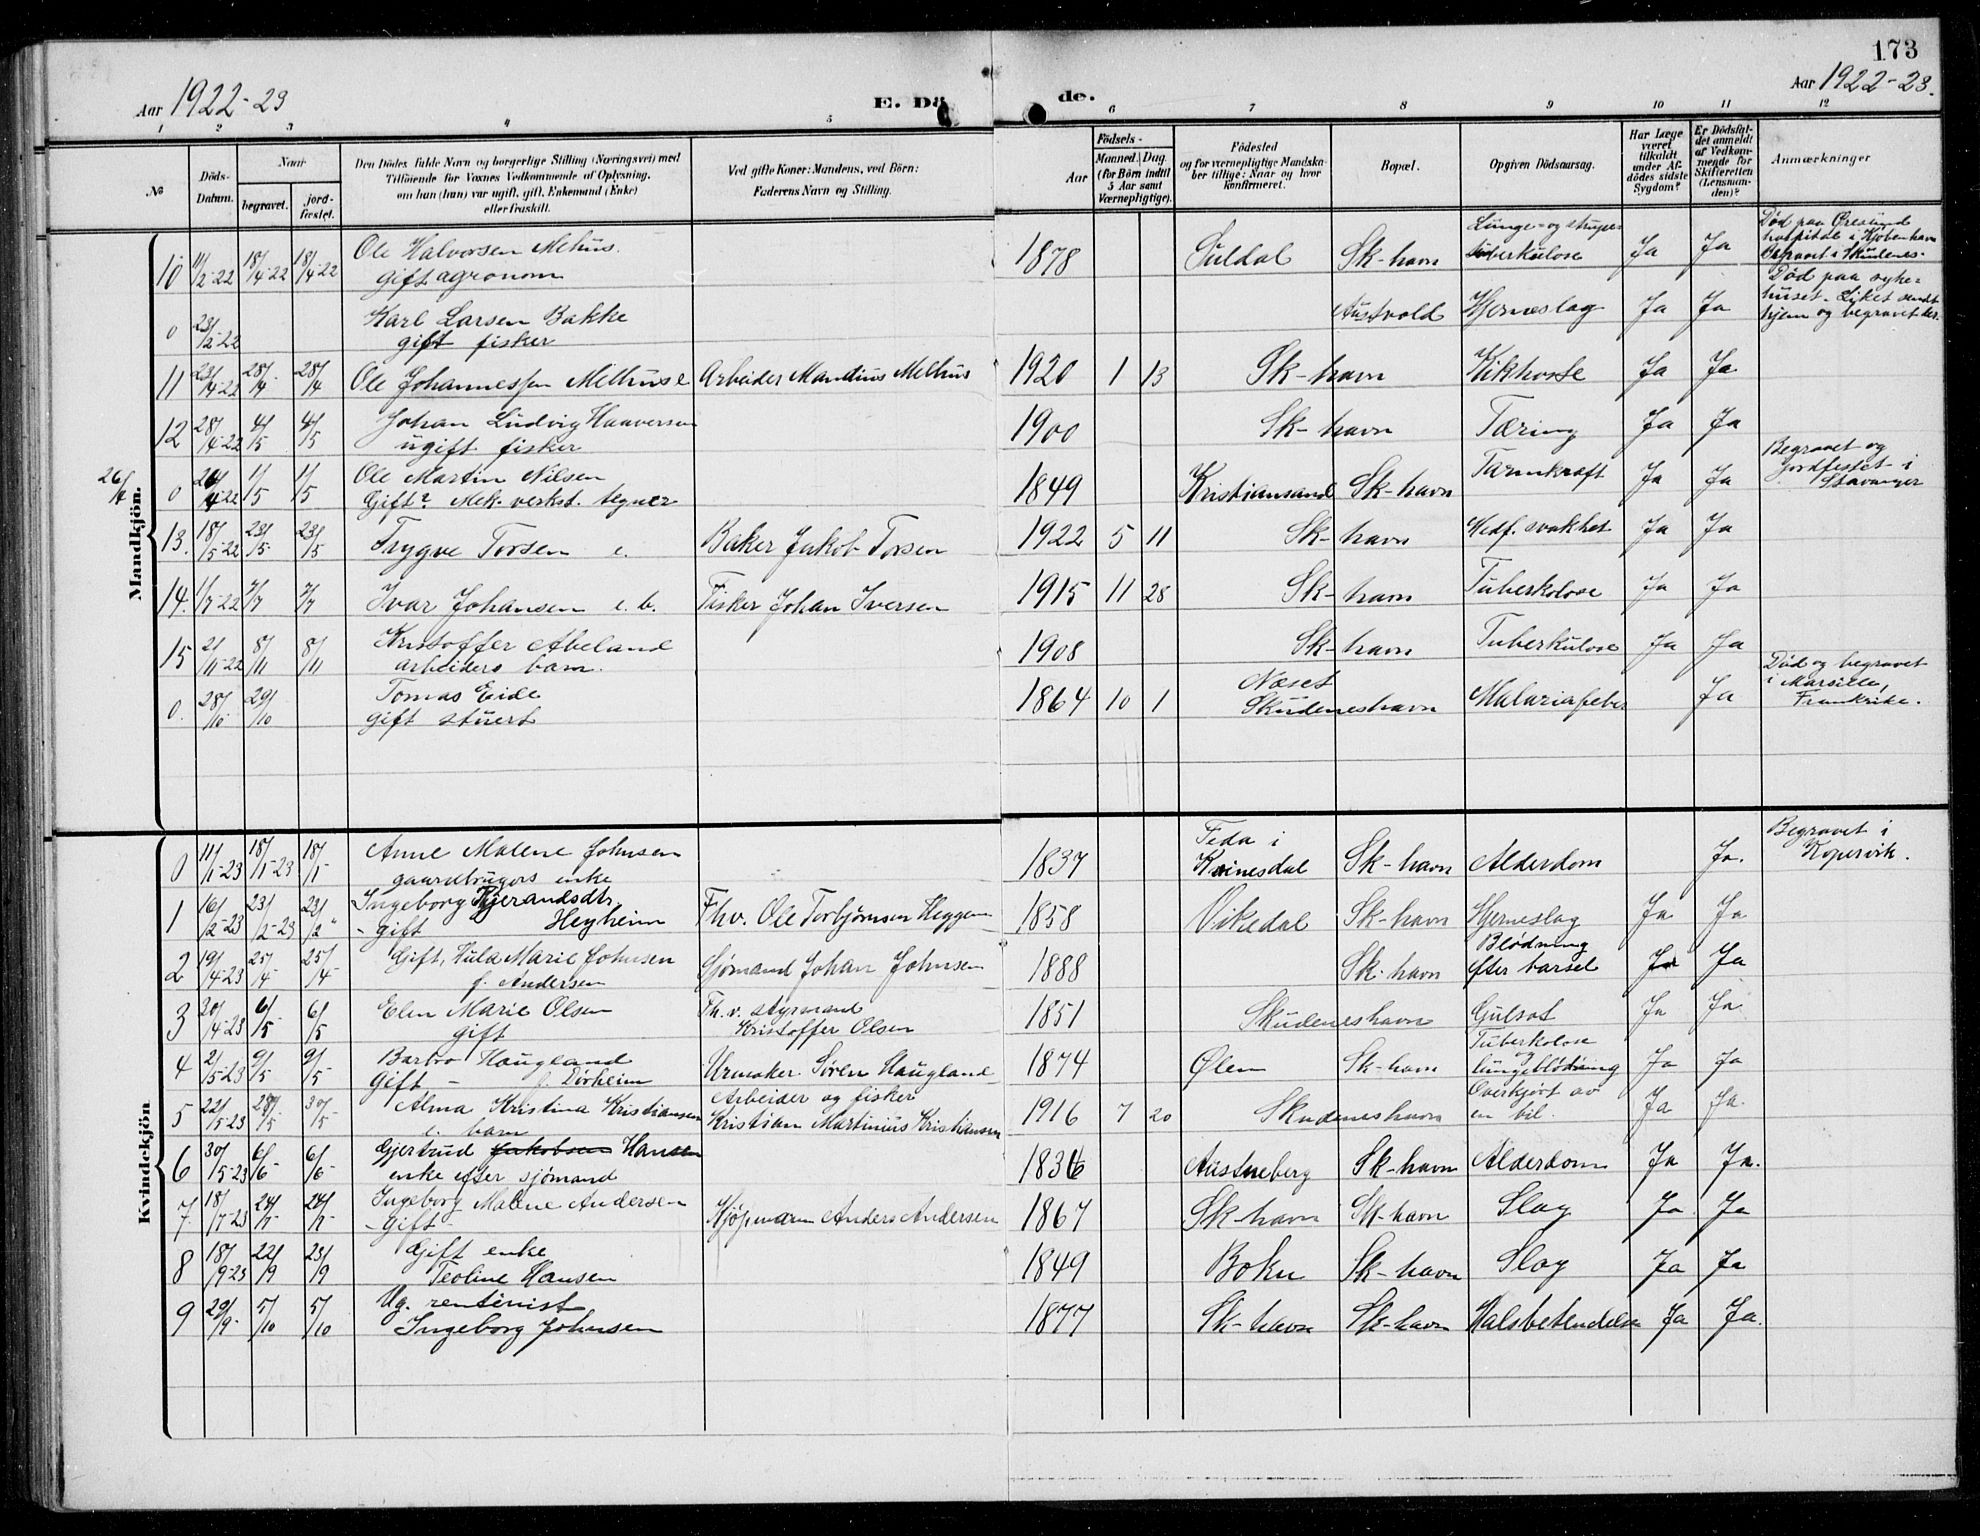 173
Aar 1922-23
E. Dö
de.
Aar 1922-23.
1 2 3 4 5 6 7 8 9 10 11 12
No
Döds-
Datum.
Naar
begravet.
jord-
fæstet.
Den Dödes fulde Navn og borgerlige Stilling (Næringsvei) med
Tilföiende for Voxnes Vedkommende af Oplysning,
om han (hun) var ugift, gift, Enkemand (Enke)
eller fraskilt.
Ved gifte Koner: Mandens, ved Börn:
Faderens Navn og Stilling.
Födsels-
Aar
Maaned. Dag.
(for Börn indtil
5 Aar samt
Værnepligtige).
Födested
og for værnepligtige Mandska-
ber tillige: Naar og hvor
konfirmeret.
Bopæl.
Opgiven Dödsaarsag.
Har Læge
været
tilkaldt
under Af-
dödes sidste
Sygdom?
Er Dödsfal-
det anmeldt
af Vedkom-
mende for
Skifteretten
(Lensman-
den)?
Anmærkninger
Mandkjön.
10 11/2-22 18/4-22 18/4-22 Ole Halvorsen Mehus.
gift agronom
1878 Suldal Sk-havn Lunge- og strupe-
tuberkulose Ja Ja
Død paa Øresund
hospital i Kjøbenhavn
Begravet i Skudenes-
0 23/2-22 Karl Larsen Bakke
gift fisker
Austvold Hjerneslag Ja Ja
Død paa syke-
huset. Liket sendt
hjem og begravet der.
11 23/4-22 28/4 28/4 Ole Johannessen Melhus e Arbeider Mandius Melhus 1920 1 13 Sk-havn Kikhoste Ja Ja
12 28/4-22 4/5 4/5 Johan Ludvig Haaversen
ugift fisker
1900 Sk-havn Tæring Ja Ja
26/4 0 26/4-22 1/5 1/5 Ole Martin Nilsen
Gift? Mek. verkst. tegner
1849 Kristiansand Sk-havn Tarmkræft Ja Ja
Begravet og
jordfestet i
Stavanger
13. 18/5-22 23/5 23/5 Trygve Torsen e. Baker Jakob Torsen 1922 5 11 Sk-havn Medf. svakhet Ja Ja
14. 1/7-22 7/7 7/7 Ivar Johansen e. b. Fisker Johan Iversen 1915 11 28 Sk-havn Tuberkolose Ja Ja
15 2/11-22 8/11 8/11 Kristoffer Abeland
arbeiders barn.
1908 Sk-havn Tuberkulose Ja Ja
0. 28/10 29/10 Tomas Eide
gift stuert
1864 10 1 Næset
Skudeneshavn Malariafeber Ja
Død og begravet
i Marseille,
Frankrike.
Kvindekjön
0 11/1-23 18/1-23 18/1 Anne Malene Johnsen
gaardbrugers enke
1837 Feda i
Kvinesdal Sk-havn Alderdom Ja.
Begravet i
Kopervik.
1 16/2-23 23/2-23 23/2 Ingeborg Tjerandsdtr.
- gift Heyheim
Fhv. Ole Torbjørnsen Heggem 1858 Vikedal Sk-havn Hjerneslag Ja Ja
2 19/4-23 25/4 25/4 Gift, Hula Marie Johnsen
f. Andersen
Sjømand Johan Johnsen 1888 Sk-havn Blødning
efter barsel Ja Ja
3 20/4-23 6/5 6/5 Elen Marie Olsen
gift
Fh.v. styrmand
Kristoffer Olsen 1851 Skudeneshavn Gulsot Ja Ja
4 2/5-23 9/5 9/5 Barbro Haugland
Gift - f. Dørheim
Urmaker Søren Haugland 1874 Ølen Sk-havn Tuberkolose
og
lungeblødning Ja Ja
5 22/5-23 28/5 30/5 Alma Kristina Kristiansen
e. barn
Arbeider og fisker
Kristian Martinius Kristiansen 1916 7 20 Skudeneshavn Overkjørt av
en bil. Ja Ja.
6 30/5-23 6/6 6/6 Gjertrud Jakobsen Hansen
enke efter sjømand
1836 Austneberg Sk-havn Alderdom Ja Ja.
7. 18/7-23 24/7 24/7 Ingeborg Malene Andersen
- Gift -
Kjøpmann Anders Andersen 1867 Sk-havn Sk-havn Slag Ja Ja
8 18/9-23 22/9 23/9 Gift enke
Teoline Hansen
1849 Bokn Sk-havn Slag Ja Ja
9 29/9- 5/10 5/10 Ug. rentenist
Ingeborg Johnsen
1877 Sk-havn Sk-havn Halsbetendelse Ja Ja.